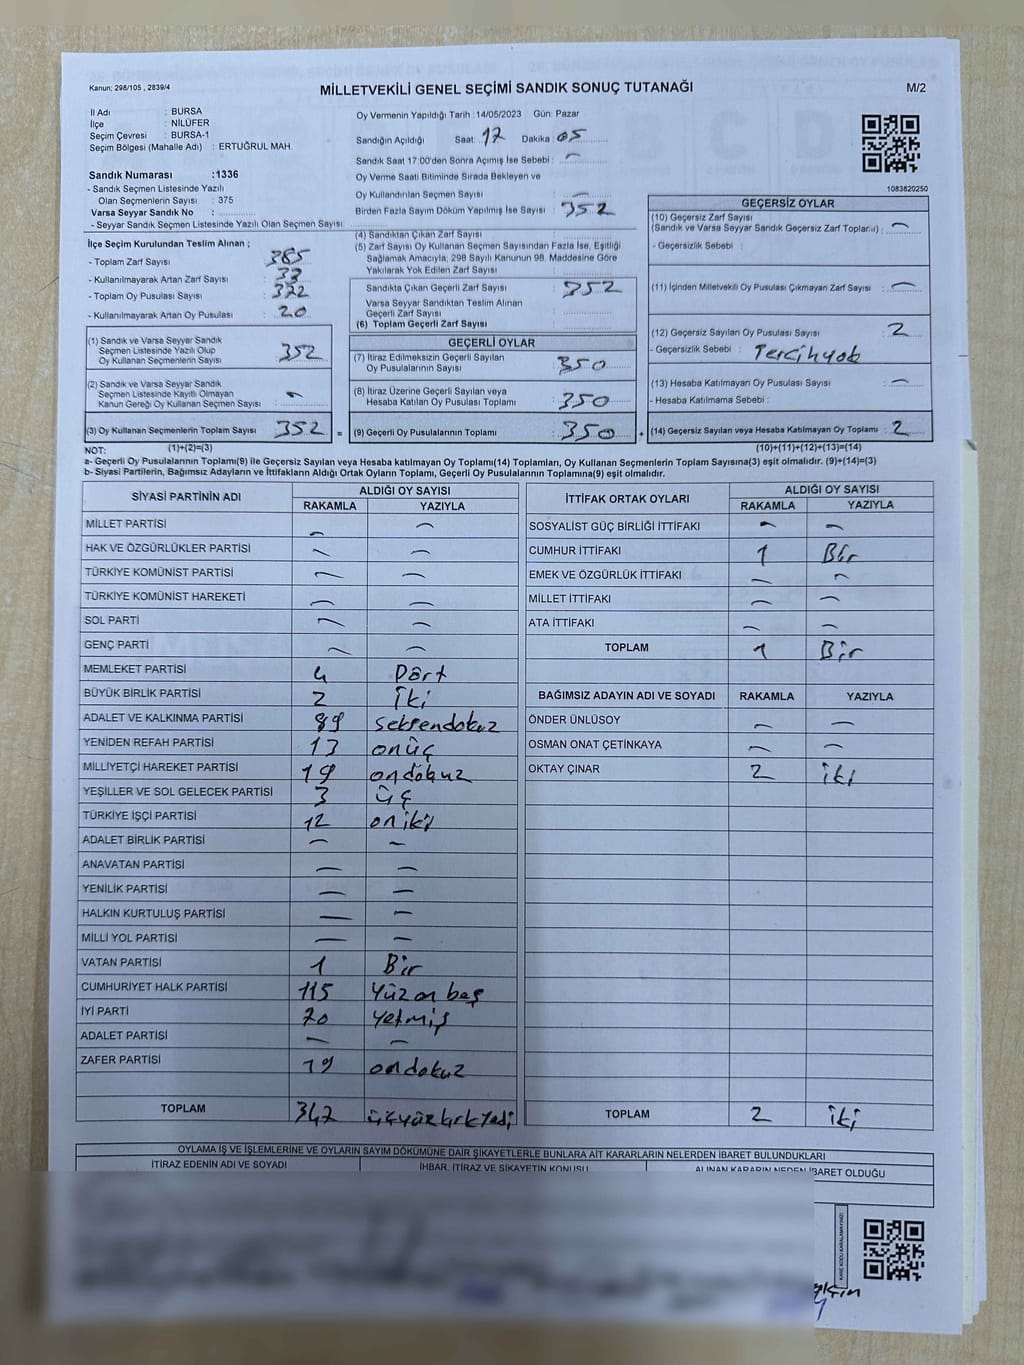 Kanun; 298/105 , 2839/4
MİLLETVEKİLİ GENEL SEÇİMİ SANDIK SONUÇ TUTANAĞI
M/2
İl Adı : BURSA
İlçe : NİLÜFER
Seçim Çevresi : BURSA-1
Seçim Bölgesi (Mahalle Adı) : ERTUĞRUL MAH.
Sandık Numarası :1336
- Sandık Seçmen Listesinde Yazılı
Olan Seçmenlerin Sayısı : 375
Varsa Seyyar Sandık No :
- Seyyar Sandık Seçmen Listesinde Yazılı Olan Seçmen Sayısı:
Oy Vermenin Yapıldığı Tarih : 14/05/2023 Gün: Pazar
Sandığın Açıldığı Saat: 17 Dakika: 05
Sandık Saat 17:00'den Sonra Açımış İse Sebebi : —
Oy Verme Saati Bitiminde Sırada Bekleyen ve
Oy Kullandırılan Seçmen Sayısı : —
Birden Fazla Sayım Döküm Yapılmış İse Sayısı : 352
1083820250
İlçe Seçim Kurulundan Teslim Alınan ;
- Toplam Zarf Sayısı : 385
- Kullanılmayarak Artan Zarf Sayısı : 33
- Toplam Oy Pusulası Sayısı : 372
- Kullanılmayarak Artan Oy Pusulası : 20
(1) Sandık ve Varsa Seyyar Sandık
Seçmen Listesinde Yazılı Olup
Oy Kullanan Seçmenlerin Sayısı : 352
(2) Sandık ve Varsa Seyyar Sandık
Seçmen Listesinde Kayıtlı Olmayan
Kanun Gereği Oy Kullanan Seçmen Sayısı : —
(3) Oy Kullanan Seçmenlerin Toplam Sayısı 352 =
(4) Sandıktan Çıkan Zarf Sayısı :
(5) Zarf Sayısı Oy Kullanan Seçmen Sayısından Fazla İse, Eşitliği
Sağlamak Amacıyla; 298 Sayılı Kanunun 98. Maddesine Göre
Yakılarak Yok Edilen Zarf Sayısı :
Sandıkta Çıkan Geçerli Zarf Sayısı : 352
Varsa Seyyar Sandıktan Teslim Alınan
Geçerli Zarf Sayısı :
(6) Toplam Geçerli Zarf Sayısı :
GEÇERLİ OYLAR
(7) İtiraz Edilmeksizin Geçerli Sayılan
Oy Pusulalarının Sayısı : 350
(8) İtiraz Üzerine Geçerli Sayılan veya
Hesaba Katılan Oy Pusulası Toplamı : 350
(9) Geçerli Oy Pusulalarının Toplamı : 350 +
GEÇERSİZ OYLAR
(10) Geçersiz Zarf Sayısı
(Sandık ve Varsa Seyyar Sandık Geçersiz Zarf Toplamı) : —
- Geçersizlik Sebebi :
(11) İçinden Milletvekili Oy Pusulası Çıkmayan Zarf Sayısı : —
(12) Geçersiz Sayılan Oy Pusulası Sayısı : 2
- Geçersizlik Sebebi : Tercihyok
(13) Hesaba Katılmayan Oy Pusulası Sayısı : —
- Hesaba Katılmama Sebebi :
(14) Geçersiz Sayılan veya Hesaba Katılmayan Oy Toplamı : 2
NOT: (1)+(2)=(3) (10)+(11)+(12)+(13)=(14)
a- Geçerli Oy Pusulalarının Toplamı(9) ile Geçersiz Sayılan veya Hesaba katılmayan Oy Toplamı(14) Toplamları, Oy Kullanan Seçmenlerin Toplam Sayısına(3) eşit olmalıdır. (9)+(14)=(3)
b- Siyasi Partilerin, Bağımsız Adayların ve İttifakların Aldığı Ortak Oyların Toplamı, Geçerli Oy Pusulalarının Toplamına(9) eşit olmalıdır.
SİYASİ PARTİNİN ADI ALDIĞI OY SAYISI
RAKAMLA YAZIYLA
MİLLET PARTİSİ — —
HAK VE ÖZGÜRLÜKLER PARTİSİ — —
TÜRKİYE KOMÜNİST PARTİSİ — —
TÜRKİYE KOMÜNİST HAREKETİ — —
SOL PARTİ — —
GENÇ PARTİ — —
MEMLEKET PARTİSİ 4 Dört
BÜYÜK BİRLİK PARTİSİ 2 İki
ADALET VE KALKINMA PARTİSİ 89 seksendokuz
YENİDEN REFAH PARTİSİ 13 onüç
MİLLİYETÇİ HAREKET PARTİSİ 19 ondokuz
YEŞİLLER VE SOL GELECEK PARTİSİ 3 üç
TÜRKİYE İŞÇİ PARTİSİ 12 oniki
ADALET BİRLİK PARTİSİ — —
ANAVATAN PARTİSİ — —
YENİLİK PARTİSİ — —
HALKIN KURTULUŞ PARTİSİ — —
MİLLİ YOL PARTİSİ — —
VATAN PARTİSİ 1 Bir
CUMHURİYET HALK PARTİSİ 115 yüz on beş
İYİ PARTİ 70 yetmiş
ADALET PARTİSİ — —
ZAFER PARTİSİ 19 ondokuz
TOPLAM 347 üçyüzkırkyedi
İTTİFAK ORTAK OYLARI ALDIĞI OY SAYISI
RAKAMLA YAZIYLA
SOSYALİST GÜÇ BİRLİĞİ İTTİFAKI — —
CUMHUR İTTİFAKI 1 Bir
EMEK VE ÖZGÜRLÜK İTTİFAKI — —
MİLLET İTTİFAKI — —
ATA İTTİFAKI — —
TOPLAM 1 Bir
BAĞIMSIZ ADAYIN ADI VE SOYADI RAKAMLA YAZIYLA
ÖNDER ÜNLÜSOY — —
OSMAN ONAT ÇETİNKAYA — —
OKTAY ÇINAR 2 iki
TOPLAM 2 iki
OYLAMA İŞ VE İŞLEMLERİNE VE OYLARIN SAYIM DÖKÜMÜNE DAİR ŞİKAYETLERLE BUNLARA AİT KARARLARIN NELERDEN İBARET BULUNDUKLARI
İTİRAZ EDENİN ADI VE SOYADI İHBAR, İTİRAZ VE ŞİKAYETİN KONUSU ALINAN KARARIN NEDEN İBARET OLDUĞU
KARE KODU KARALAMAYINIZ!